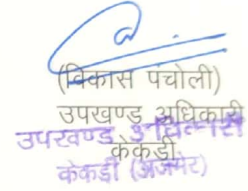 (विकास पंचोली)
उपखण्ड अधिकारी
उपखण्ड अधिकारी
केकड़ी
केकड़ी (अजमेर)